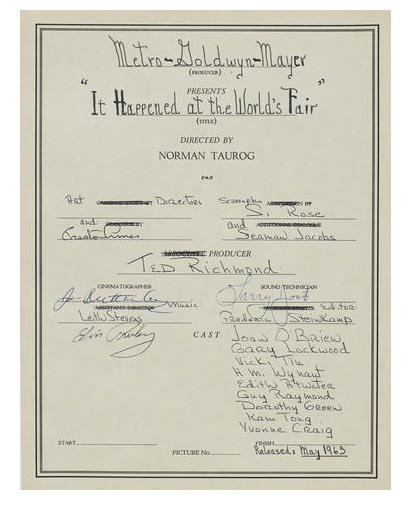 Metro-Goldwyn-Mayer
(PRODUCER)
PRESENTS
"It Happened at the World's Fair"
(TITLE)
DIRECTED BY
NORMAN TAUROG
Art Directors Screenplay
Si Rose
and and
Preston Ames Seaman Jacobs
ASSOCIATE PRODUCER
TED Richmond
CINEMATOGRAPHER SOUND TECHNICIAN
Larry Jost
ASSISTANT DIRECTOR Music: Editor
Leith Stevens Frederic Steinkamp
Elvis Presley CAST Joan O'Brien
Gary Lockwood
Vicki Tiu
H.M. Wynant
Edith Atwater
Guy Raymond
Dorothy Green
Kam Tong
Yvonne Craig
START FINISH
PICTURE No. Released: May 1963